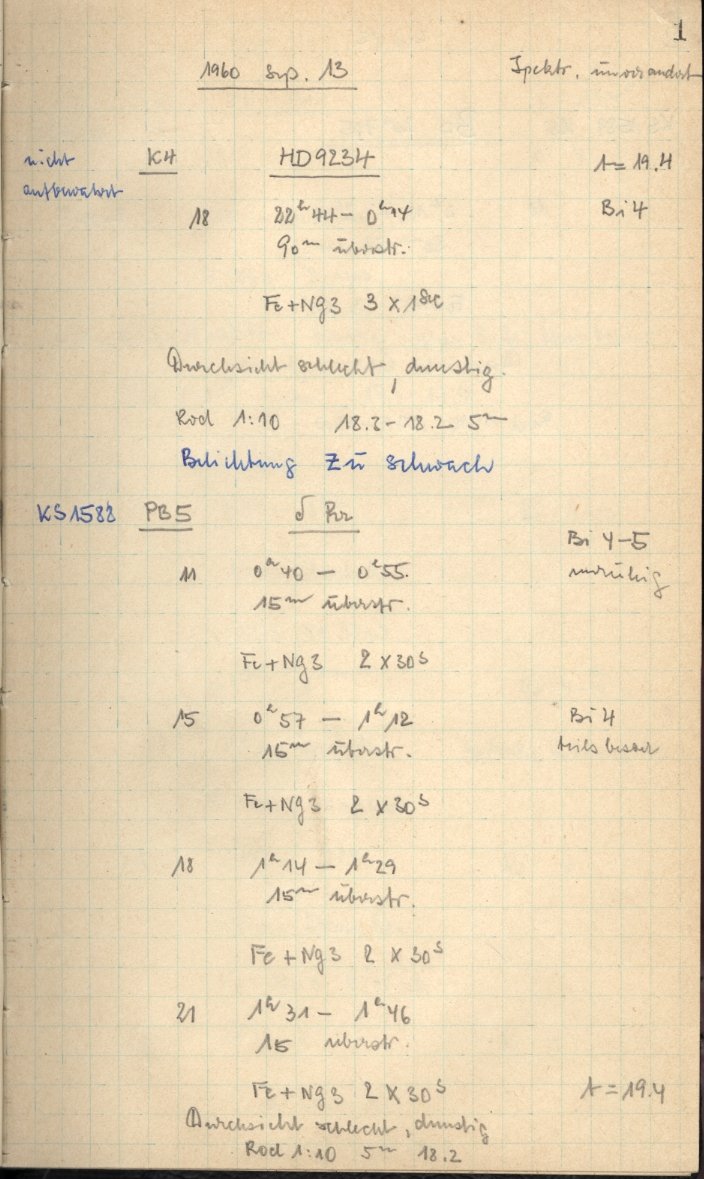 1
1960 Sep. 13 Spektr. unverändert
nicht aufbewahrt K4 HD9234 t=19.4
18 22h44 – 0h14 Bi 4
90m überstr.
Fe+Ng3 3 x 1Sec
Durchsicht schlecht, dunstig.
Rod 1:10 18.2–18.2 5m
Belichtung zu schwach
KS1588 PB5 δ
Bi 4–5
11 0h40 – 0h55. unruhig
15m überstr.
Fe+Ng3 2 x 30s
15 0h57 – 1h12 Bi 4
15m überstr. teils besser
Fe+Ng3 2 x 30s
18 1h14 – 1h29
15m überstr.
Fe+Ng3 2 x 30s
21 1h31 – 1h46
15 überstr.
Fe+Ng3 2 x 30s t=19.4
Durchsicht schlecht, dunstig
Rod 1:10 5m 18.2